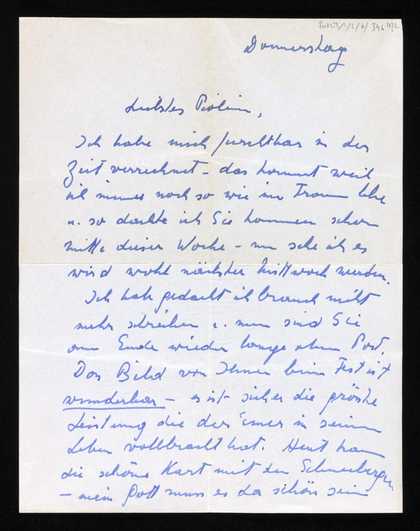 Donnerstag
Liebstes Violin,
Ich habe mich furchtbar in der
Zeit verrechnet – das kommt weil
ich immer noch so wie im Traum lebe
u. so dachte ich Sie kommen schon
mitte dieser Woche – nun sehe ich es
wird wohl nächster Mittwoch werden.
Ich hab gedacht ich brauch nicht
mehr schreiben u. nun sind Sie
am Ende wieder lange ohne Post.
Das Bild von Ihnen beim Fest ist
wunderbar – es ist sicher die grösste
Leistung die der in seinem
Leben vollbracht hat. Heut kam
die schöne Kart mit den Schneebergen
– mein Gott muss es da schön sein